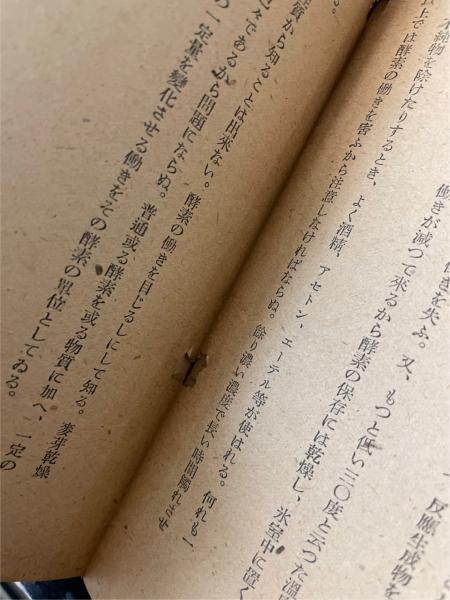 反應生成物を
働きを失ふ。又、もつと低い三〇度と云つた溫度
働きが減つて來るから酵素の保存には乾燥し、氷室中に置く
不純物を除けたりするとき、よく酒精、アセトン、エーテル等が使はれる。何れも一
以上では酵素の働きを害ふから注意しなければならぬ。餘り濃い濃度で長い時間觸れさせ
性質から知ることは出來ない。酵素の働きを目じるしにして知る。麥芽乾燥
々であるから問題にならぬ。普通或る酵素を或る物質に加へ、一定の
の一定量を變化させる働きをその酵素の單位としてゐる。